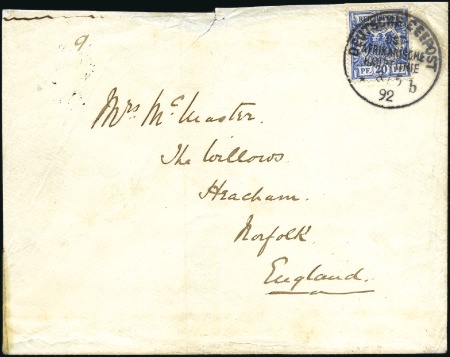 9.
DEUTSCHE SEEPOST
OST
AFRIKANISCHE
LINIE
20
PF
b
92
Mrs McMaster.
The Willows
Heacham.
Norfolk.
England.